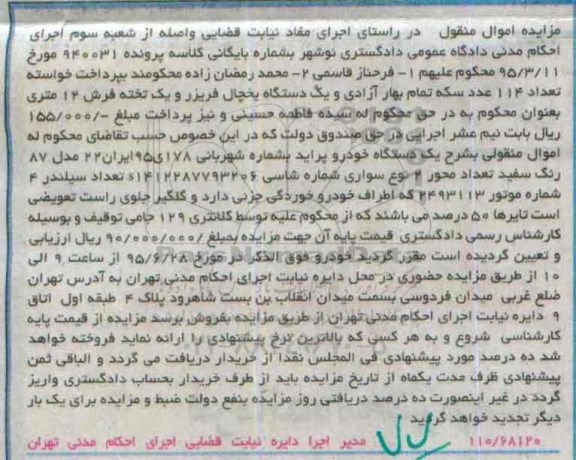 مزایده اموال منقول در راستای اجرای مفاد نیابت قضایی واصله از شعبه سوم اجرای
احکام مدنی دادگاه عمومی دادگستری نوشهر بشماره بایگانی کلاسه پرونده ۹۴۰۰۳۱ مورخ
۹۵/۳/۱۱ محکوم علیهم ۱- فرحناز قاسمی ۲- محمد رمضان زاده محکومند بپرداخت خواسته
تعداد ۱۱۴ عدد سکه تمام بهار آزادی و یگ دستگاه یخچال فریزر و یک تخته فرش ۱۲ متری
بعنوان محکوم به در حق محکوم له سیده فاطمه حسینی و نیز پرداخت مبلغ -/۱۵۵/۰۰۰
ریال بابت نیم عشر اجرایی در حق صندوق دولت که در این خصوص حسب تقاضای محکوم له
اموال منقولی بشرح یک دستگاه خودرو پراید بشماره شهربانی ۱۷۸ی۹۵ایران۲۲ مدل ۸۷
رنگ سفید تعداد محور ۲ نوع سواری شماره شاسی ۱۴۱۲۲۸۷۷۹۳۲۰۶s تعداد سیلندر ۴
شماره موتور ۲۴۹۳۱۱۳ که اطراف خودرو خوردگی جزئی دارد و گلگیر جلوی راست تعویضی
است تایرها ۵۰ درصد می باشند که از محکوم علیه توسط کلانتری ۱۲۹ جامی توقیف و بوسیله
کارشناس رسمی دادگستری قیمت پایه آن جهت مزایده بمبلغ /۹۰/۰۰۰/۰۰۰ ریال ارزیابی
و تعیین گردیده است مقرر گردید خودرو فوق الذکر در مورخ ۹۵/۶/۲۸ از ساعت ۹ الی
۱۰ از طریق مزایده حضوری در محل دایره نیابت اجرای احکام مدنی تهران به آدرس تهران
ضلع غربی میدان فردوسی بسمت میدان انقلاب بن بست شاهرود پلاک ۴ طبقه اول اتاق
۹ دایره نیابت اجرای احکام مدنی تهران از طریق مزایده بفروش برسد مزایده از قیمت پایه
کارشناسی شروع و به هر کسی که بالاترین نرخ پیشنهادی را ارائه نماید فروخته خواهد
شد ده درصد مورد پیشنهادی فی المجلس نقدا از خریدار دریافت می گردد و الباقی ثمن
پیشنهادی ظرف مدت یکماه از تاریخ مزایده باید از طرف خریدار بحساب دادگستری واریز
گردد در غیر اینصورت ده درصد دریافتی روز مزایده بنفع دولت ضبط و مزایده برای یک بار
دیگر تجدید خواهد گردید
۱۱۰/۶۸۱۲۰ مدیر اجرا دایره نیابت قضایی اجرای احکام مدنی تهران